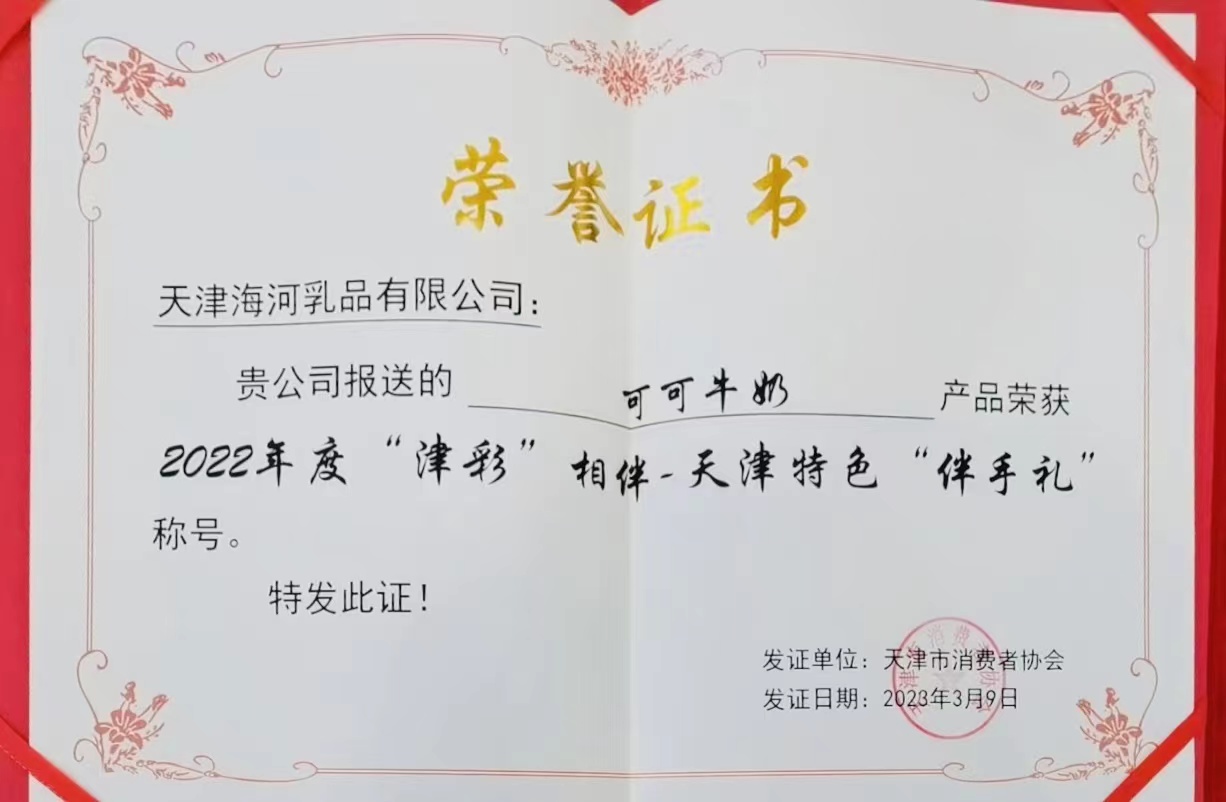 荣誉证书
天津海河乳品有限公司:
贵公司报送的 可可牛奶 产品荣获
2022年度“津彩”相伴-天津特色“伴手礼”
称号。
特发此证!
发证单位:天津市消费者协会
发证日期:2023年3月9日
天津市消费者协会